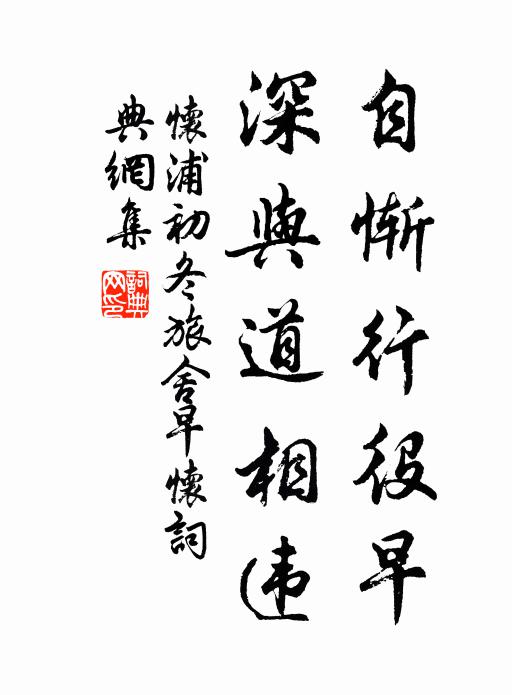 自惭行役早
深與道相违
懷浦初冬旅舍早懷詞
典網集
詞典
网印